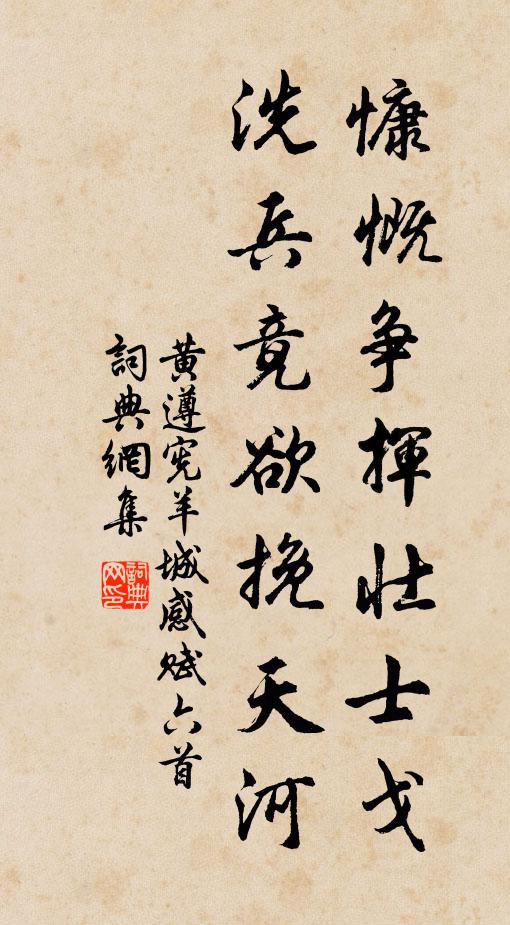 慷慨争揮壮士戈
洗兵竟欲挽天河
黄遵宪羊城感赋六首
詞典網集
詞典网印